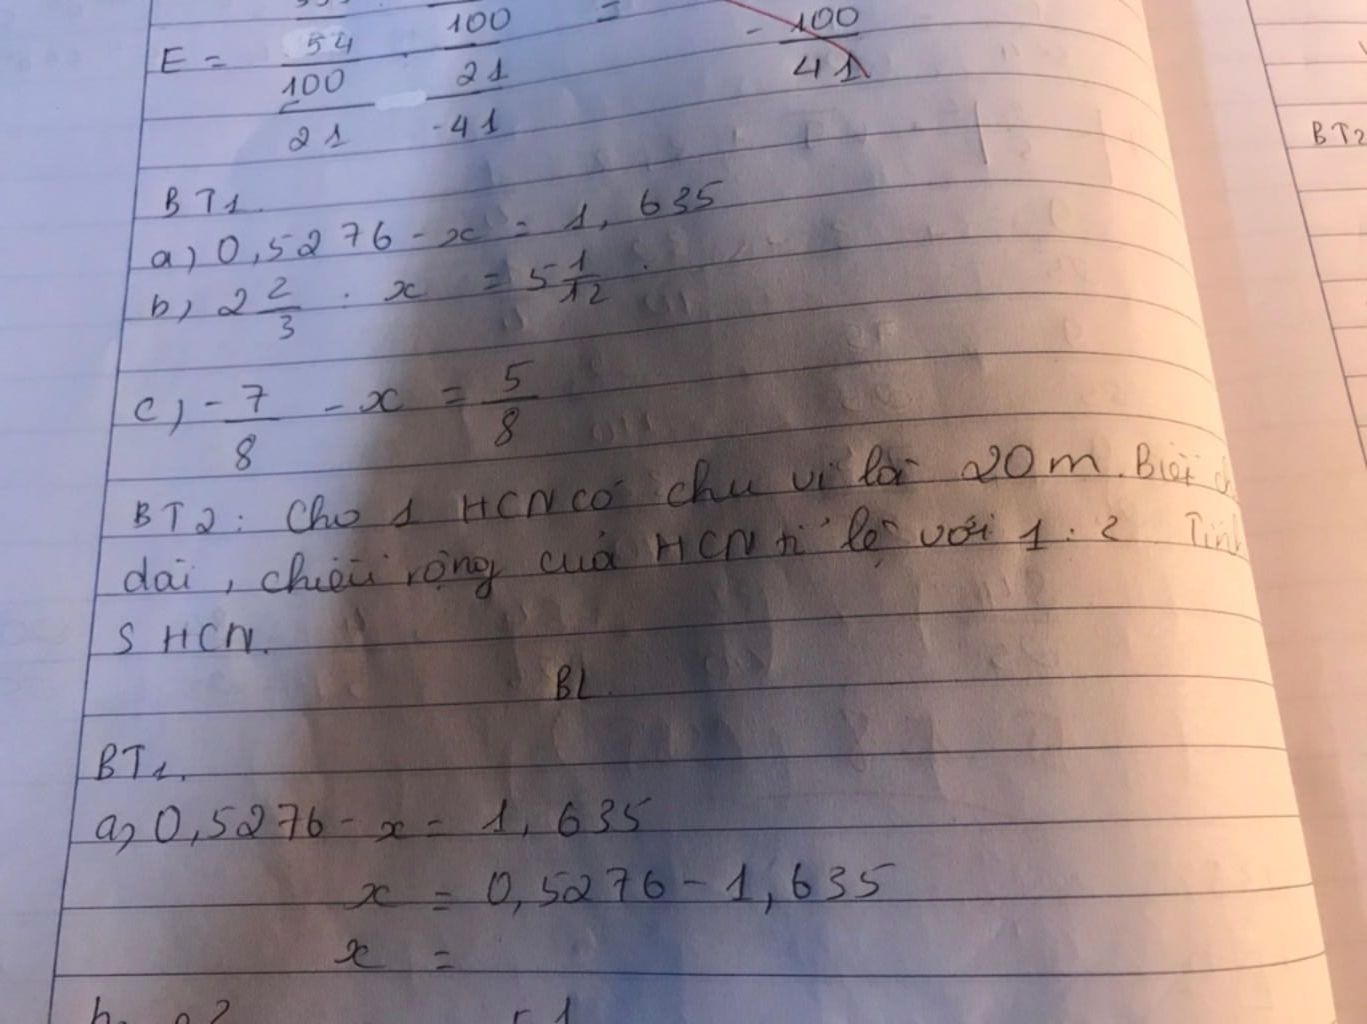 E = 54/100 . 100/21 = - 100/41
100/21 21/-41
BT1.
a) 0,5276 - x = 1,635
b) 2 2/3 . x = 5 1/12 .
c) -7/8 - x = 5/8
BT2: Cho 1 HCN có chu vi là 20m. Biết
dài, chiều rộng của HCN tỉ lệ với 1:2 Tính
S HCN.
BL
BT1.
a, 0,5276 - x = 1,635
x = 0,5276 - 1,635
x =
BT2